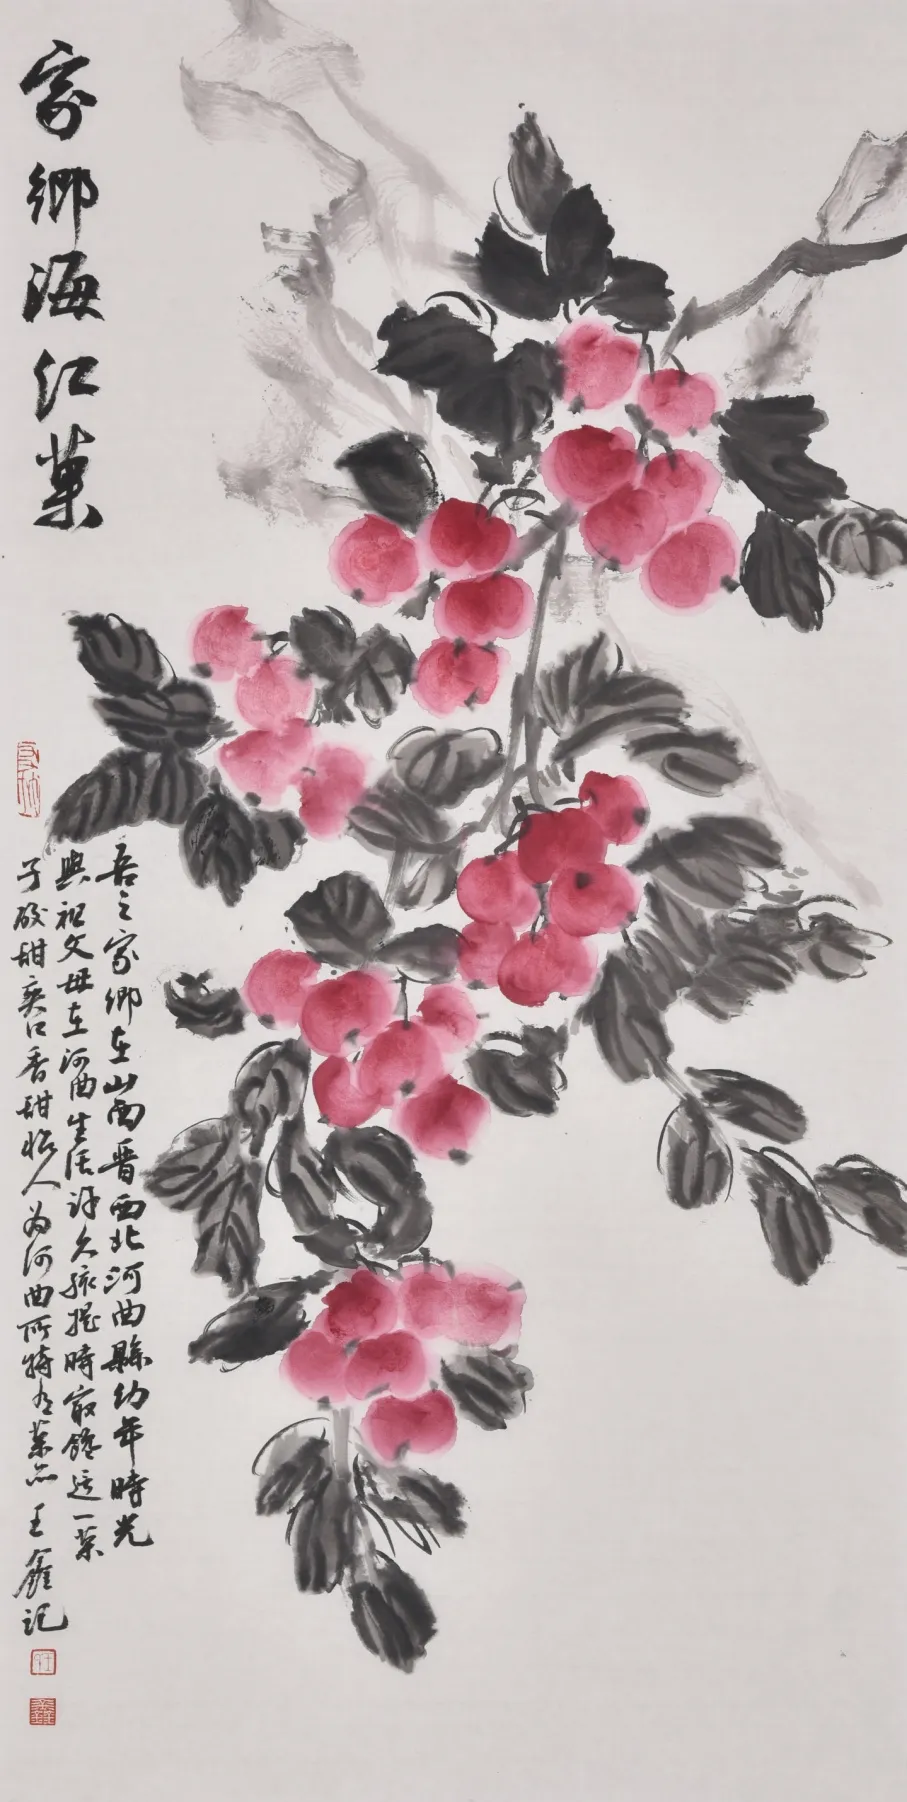 家鄉海红菓
吾之家鄉在山西晋西北河曲縣幼年時光
與祖父母在河曲生活许久孩提時最馋这一菓
子酸甜爽口香甜怡人为河曲所特有菓品王鑫记